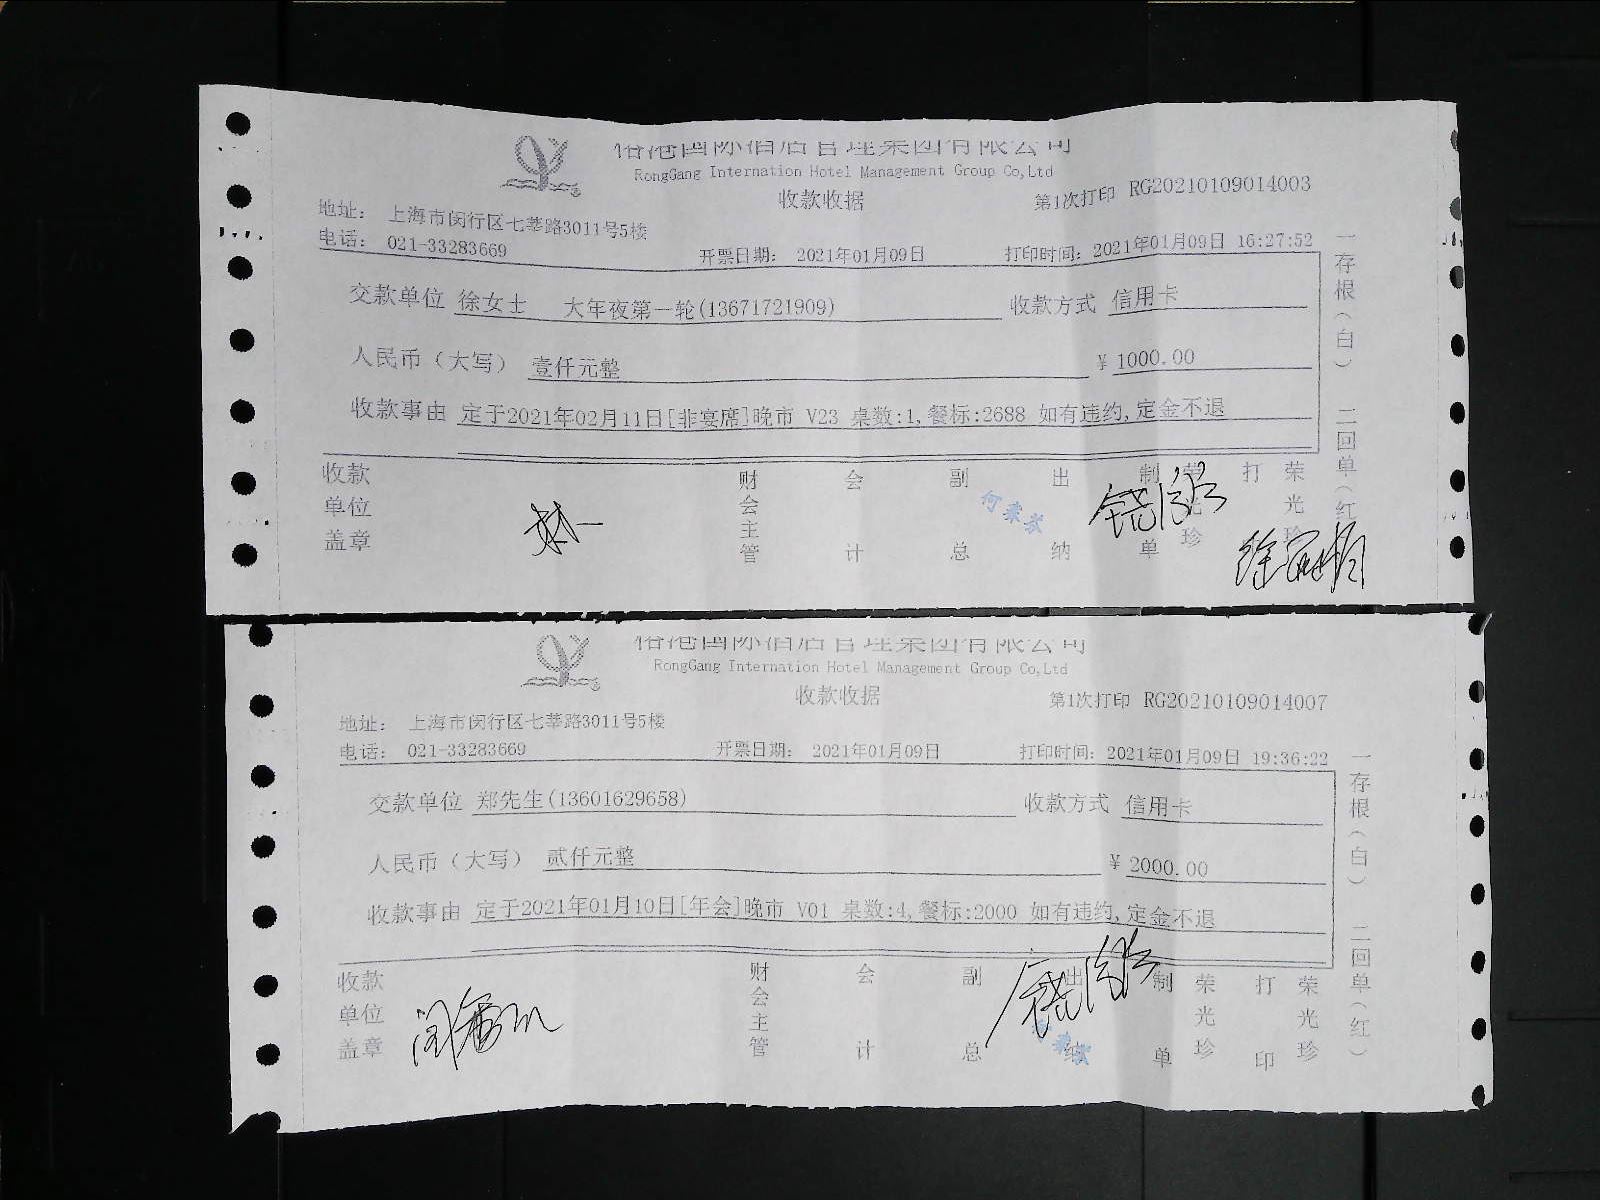 国际酒店管理集团有限公司
RongGang Internation Hotel Management Group Co,Ltd
收款收据
第1次打印 RG20210109014003
地址： 上海市闵行区七莘路3011号5楼
电话： 021-33283669
开票日期： 2021年01月09日
打印时间：2021年01月09日 16:27:52
交款单位 徐女士 大年夜第一轮(13671721909)
收款方式 信用卡
人民币（大写） 壹仟元整
¥ 1000.00
收款事由 定于2021年02月11日[非宴席]晚市 V23 桌数:1,餐标:2688 如有违约,定金不退
一存根（白） 二回单（红
收款单位盖章
财会主管
会计
副总
出纳
制单
荣光珍
打
荣光珍
国际酒店管理集团有限公司
RongGang Internation Hotel Management Group Co,Ltd
收款收据
第1次打印 RG20210109014007
地址： 上海市闵行区七莘路3011号5楼
电话： 021-33283669
开票日期： 2021年01月09日
打印时间：2021年01月09日 19:36:22
交款单位 郑先生(13601629658)
收款方式 信用卡
人民币（大写） 贰仟元整
¥ 2000.00
收款事由 定于2021年01月10日[年会]晚市 V01 桌数:4,餐标:2000 如有违约,定金不退
一存根（白） 二回单（红）
收款单位盖章
财会主管
会计
副总
出纳
制单
荣光珍
打印
荣光珍